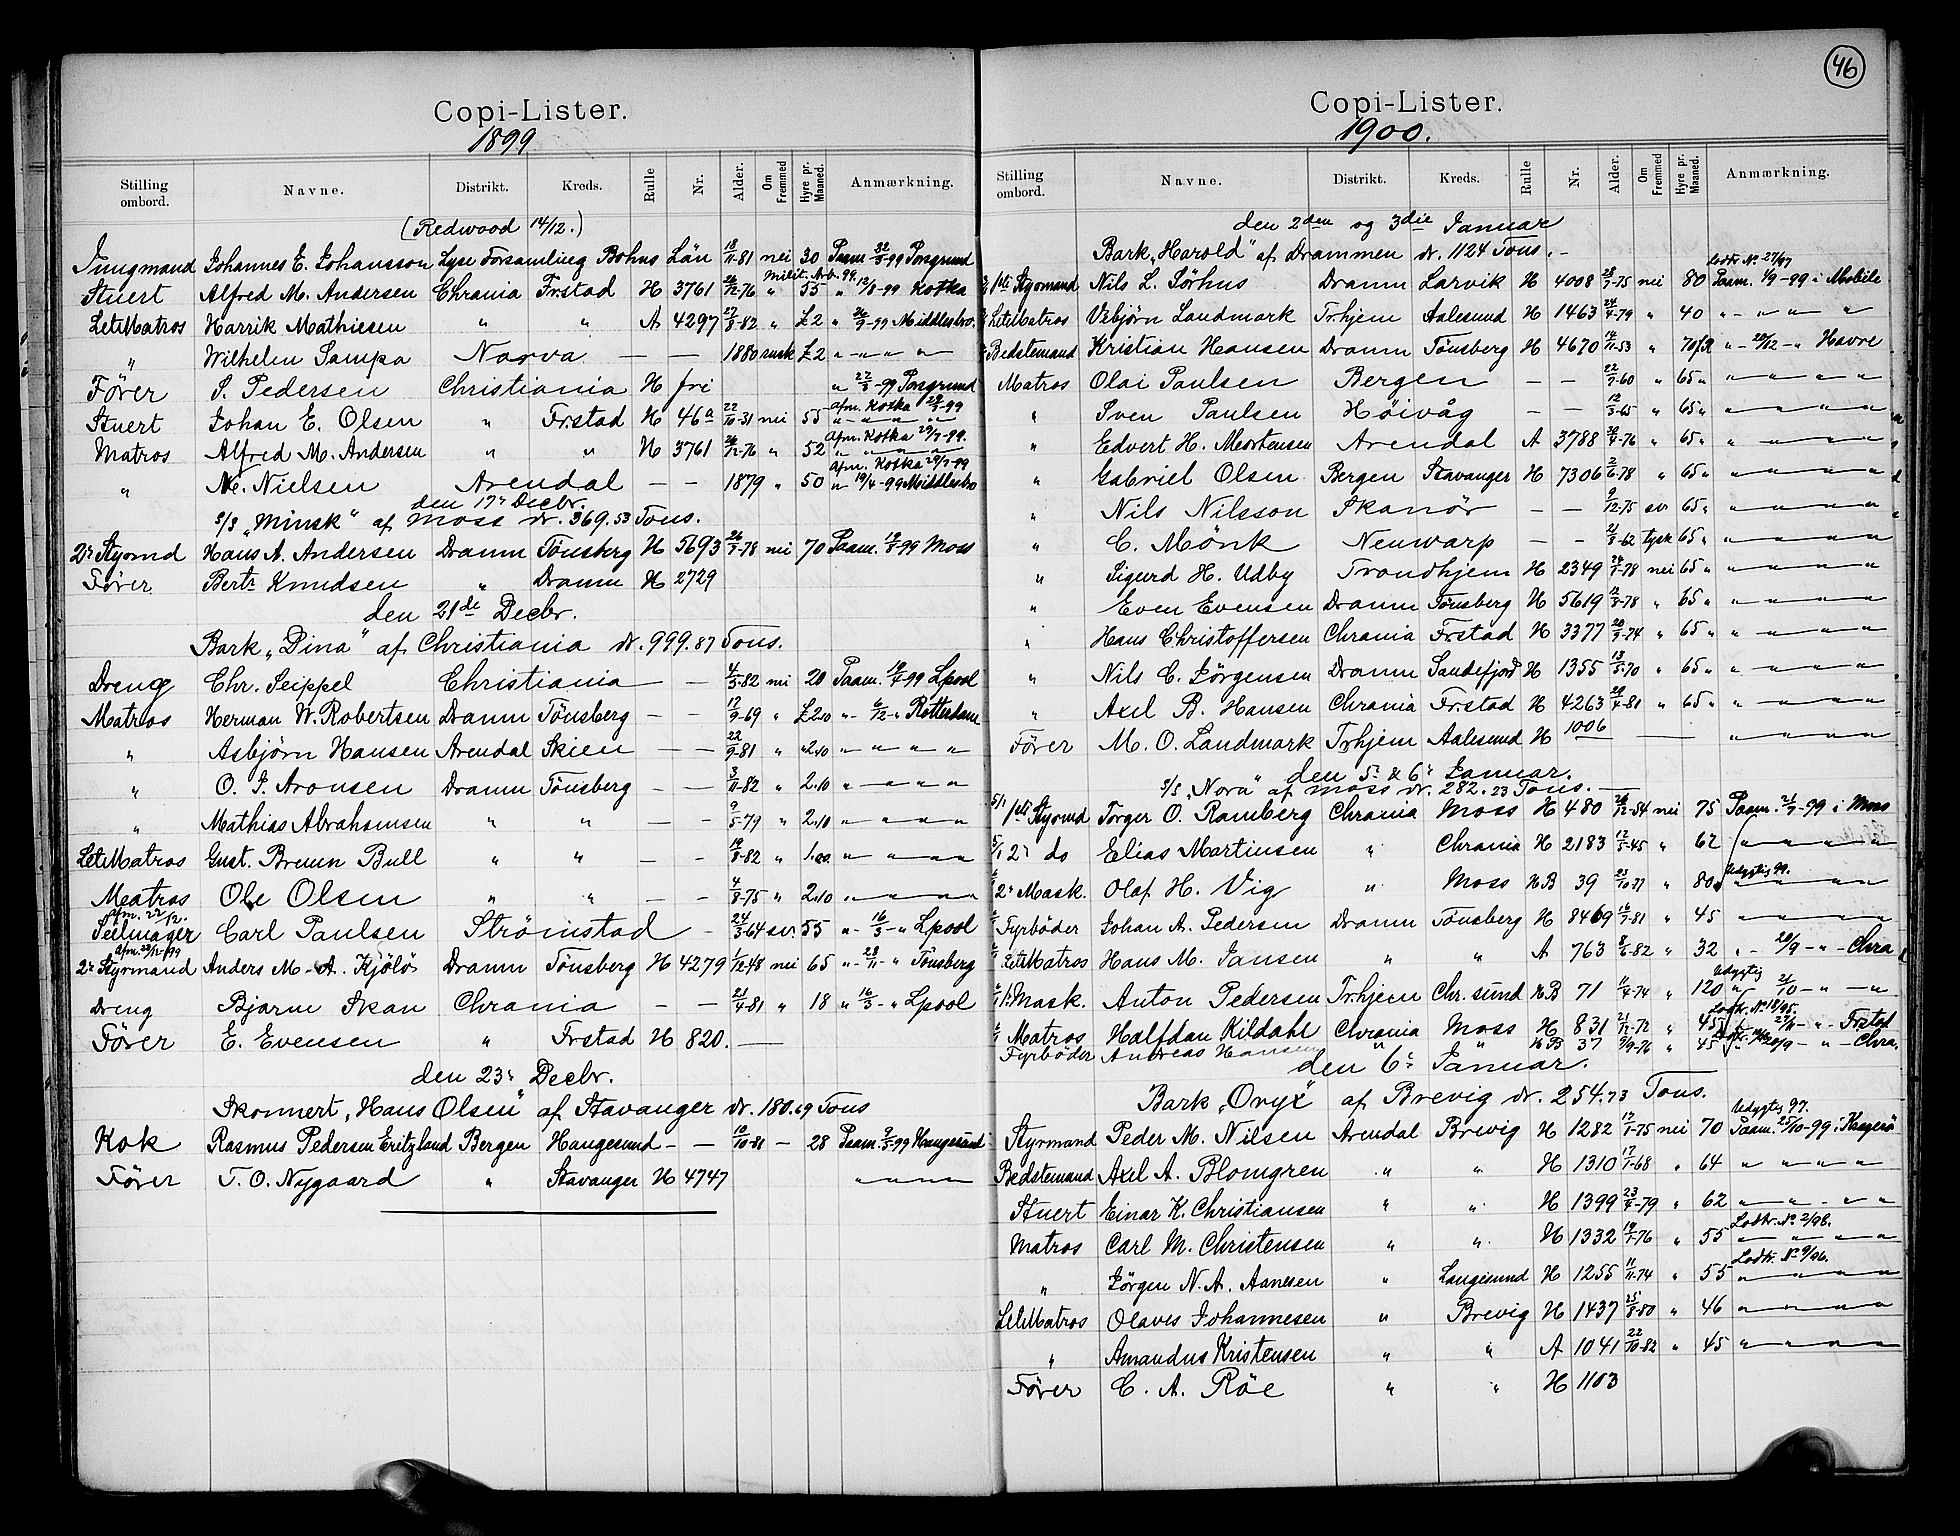 46
Copi-Lister.
1899
Stilling ombord. Navne. Distrikt. Kreds. Rulle Nr. Alder. Om Fremmed Hyre pr. Maaned. Anmærkning.
(Redwood 14/12.)
Jungmand Johannes E. Johansson Lyse Forsamling Bohus Län 18/11-81 nei 30 Paam. -99 Porsgrund
Milit. A.b. 99.
Stuert Alfred M. Andersen Chrania Frstad H 3761 26/12-76 " 55 " 12/8-99 Kotka
LetMatros Harrik Mathiesen " " A 4297 27/9-82 " £2 " 26/9-99 Middlesbro.
" Wilhelm Sampa Narva — — 1880 russk £2 " — " — " — "
Fører S. Pedersen Christiania H fri " 22/8-99 Porsgrund
Afm. Kotka 29/9-99
Stuert Johan E. Olsen " Frstad H 46a 22/10-31 nei 55 " — " — " — "
Afm. Kotka 29/9-99.
Matros Alfred M. Andersen " " H 3761 26/12-76 " 52 " — " — " — "
Afm. Kotka 29/9-99
" Ne. Nielsen Arendal — — 1879 " 50 " 19/4-99 Middlesbro
den 17' Decbr.
S/S „Minsk" af Moss dr. 369.53 Tons.
2' Stymd Hans A. Andersen Dramn Tønsberg H 5693 26/8-78 nei 70 Paam. 19/8-99 Moss
Fører Bertr Knudsen " Dramn H 2729
den 21de Decbr.
Bark „Dina" af Christiania dr. 999.87 Tons.
Dreng Chr. Seippel Christiania — — 4/3-82 nei 20 Paam. 19/4-99 Lpool
Matros Herman W. Robertsen Dramn Tønsberg — — 17/9-69 " £2.10 " - 6/12 - " Rotterdam
" Asbjørn Hansen Arendal Skien — — 22/9-81 " " 2.10 " — " — " — "
" O. J. Aronsen Dramn Tønsberg — — 3/11-82 " 2.10 " — " — " — "
" Mathias Abrahamsen " " — — 9/5-79 " 2.10 " — " — " — "
LetMatros Gust. Bruun Bull " " — — 19/8-82 " 1.00 " — " — " — "
Matros Ole Olsen " " — — 4/8-75 " 2.10 " — " — " — "
Afm. 22/12.
Seilmager Carl Paulsen Strömstad — 24/3-64 sv. 55 " - 16/3 - " Lpool
Afm. 22/12-99
2' Styrmand Anders M. A. Kjölö Dramn Tønsberg H 4279 1/12-48 nei 65 " - 28/11 - " Tønsberg
Dreng Bjarne Skau Chrania — — 21/4-81 " 18 " 16/3 - " Lpool
Fører E. Evensen " Frstad H 820. —
den 23' Decbr.
Skonnert „Hans Olsen" af Stavanger dr. 180.69 Tons
Kok Rasmus Pedersen Eritzland Bergen Haugesund — — 10/10-81 — 28 Paam. 9/5-99 Haugesund
Fører T. O. Nygaard " Stavanger H 4747 " — " — " — "
Copi-Lister.
1900.
Stilling ombord. Navne. Distrikt. Kreds. Rulle Nr. Alder. Om Fremmed Hyre pr. Maaned. Anmærkning.
den 2den og 3die Januar
Bark „Harold" af Drammen dr. 1124 Tons. —
Ledtr. No 27/97
1ste Styrmand Nils L. Sørhus Dramn Larvik H 4008 28/9-75 nei 80 Paam. 1/9-99 i Mobile
LetMatros Vebjörn Landmark Tr.hjem Aalesund H 1463 24/9-79 " 40 " — " — " — "
Bedstemand Kristian Hansen Dramn Tønsberg H 4670 14/11-53 " 70 " - 20/12 - " Havre
Matros Olai Paulsen Bergen — — 22/9-60 " 65 " " — " — " — "
" Sven Paulsen Höivåg — — 12/3-65 " 65 " " — " — " — "
" Edvert H. Mortensen Arendal A 3788 20/9-76 " 65 " " — " — " — "
" Gabriel Olsen Bergen Stavanger H 7306 2/6-78 " 65 " " — " — " — "
" Nils Nilsson Skanör — — 9/12-75 sv 65 " " — " — " — "
" C. Mönk Neuwarp — — 21/8-62 tysk 65 " " — " — " — "
" Sigurd H. Udby Trondhjem H 2349 24/1-78 nei 65 " " — " — " — "
" Even Evensen Dramn Tønsberg H 5619 12/3-78 " 65 " " — " — " — "
" Hans Christoffersen Chrania Frstad H 3377 20/9-74 " 65 " " — " — " — "
" Nils C. Jörgensen Dramn Sandefjord H 1355 13/5-70 " 65 " " — " — " — "
" Axel B. Hansen Chrania Frstad H 4263 20/4-81 " 65 " " — " — " — "
Fører M. O. Landmark Tr.hjem Aalesund H 1006 — " — " — " — "
den 5' & 6' Januar.
S/S „Nora" af Moss dr. 282.23 Tons. —
5/1 1ste Styrmd Torger O. Ramberg Chrania Moss H 480 26/12-54 nei 75 Paam. 21/9-99 i Moss
5/1 2' do Elias Martinsen " Chrania H 2183 12/5-45 " 62 " — " — " — "
Udygtig 99.
2' Mask. Olaf H. Vig " Moss H B 39 23/10-77 " 80 " — " — " — "
Fyrbøder Johan A. Pedersen Dramn Tønsberg H 8469 16/9-81 " 45 " — " — " — "
LetMatros Hans M. Jansen " " A 763 8/6-82 " 32 " - 20/9 - " - Chra
Udygtig
1' Mask. Anton Pedersen Tr.hjem Chr.sund H B 71 11/4-74 " 120 " 21/10 - " — "
Ledtr. No 18/95.
Matros Halfdan Kildahl Chrania Moss H 831 21/12-72 " 45 " 27/9 - " - Frstad
Fyrbøder Andreas Hansen " " H B 37 9/9-76 " 45 20/9 - " - Chra.
den 6' Januar.
Bark „Oryx" af Brevig dr. 254.73 Tons.
Udygtig 97.
Styrmand Peder M. Nilsen Arendal Brevig H 1282 17/1-75 nei 70 Paam. 25/10-99 i Kragerø
Bedstemand Axel A. Blomgren " " H 1310 17/1-68 " 64 " — " — " — "
Stuert Einar K. Christiansen " " H 1399 23/4-79 " 62 " — " — " — "
Ledtr. No 2/98.
Matros Carl M. Christensen " " H 1332 19/7-76 " 55 " — " — " — "
Ledtr. No 9/96.
" Jörgen N. A. Aanesen " Langesund H 1255 11/11-74 " 55 " — " — " — "
LetMatros Olaves Johannesen " Brevig H 1437 25/8-80 " 46 " — " — " — "
" Amandus Kristensen " " A 1041 22/10-82 " 45 " — " — " — "
Fører C. A. Röe " " H 1103